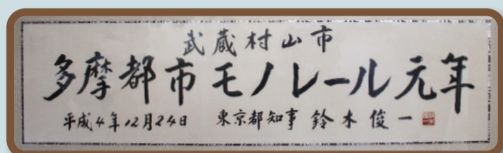 武蔵村山市
多摩都市モノレール元年
平成4年12月24日 東京都知事 鈴木俊一